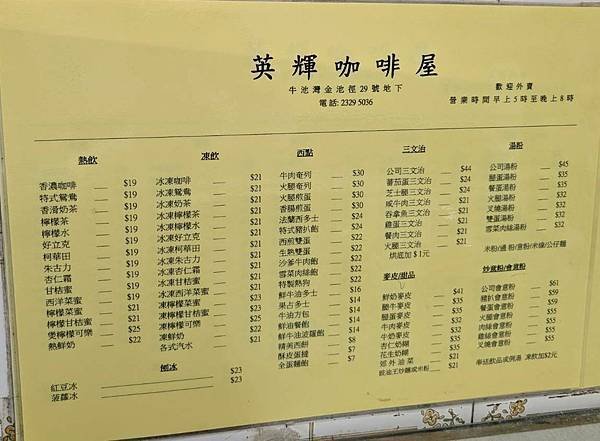 英輝咖啡屋
牛池灣金池徑29號地下
電話: 2329 5036
歡迎外賣
營業時間早上5時至晚上8時
熱飲
香濃咖啡 $19
特式鴛鴦 $19
香滑奶茶 $19
檸檬茶 $19
檸檬水 $19
好立克 $19
柯華田 $19
朱古力 $19
杏仁霜 $19
甘桔蜜 $19
西洋菜蜜 $19
檸檬菜蜜 $21
檸檬甘桔蜜 $21
煲檸檬可樂 $25
熱鮮奶 $22
凍飲
冰凍咖啡 $21
冰凍鴛鴦 $21
冰凍奶茶 $21
冰凍檸檬茶 $21
冰凍檸檬水 $21
冰凍好立克 $21
冰凍柯華田 $21
冰凍朱古力 $21
冰凍杏仁霜 $21
冰凍甘桔蜜 $21
冰凍西洋菜蜜
冰凍檸檬菜蜜 $23
檸檬甘桔蜜
檸檬可樂
凍鮮奶
各式汽水
刨冰
紅豆冰 $23
菠蘿冰 $23
西點
牛肉奄列 $30
火腿奄列 $30
火腿煎蛋 $30
香腸煎蛋 $30
法蘭西多士 $24
特式豬扒飽 $24
西煎雙蛋 $22
生熟雙蛋 $22
沙爹牛肉飽 $22
雪菜肉絲飽 $22
特製熱狗 $22
鮮牛油多士 $16
果占多士 $14
牛油方包 $14
鮮油餐飽 $14
鮮牛油菠蘿飽 $14
精美西餅 $8
酥皮蛋撻 $7
全蛋麵飽 $7
三文治
公司三文治 $44
蕃茄蛋三文治 $24
芝士腿三文治 $24
咸牛肉三文治 $21
吞拿魚三文治 $21
雞蛋三文治 $21
餐肉三文治 $21
火腿三文治 $21
烘底加$1元
麥皮/甜品
鮮奶麥皮 $41
腿牛麥皮 $35
腿蛋麥皮 $35
牛肉麥皮 $32
牛奶麥皮 $35
杏仁奶糊 $35
花生奶糊 $35
郊外油菜 $21
豉油王炒麵或米粉 $21
湯粉
公司湯粉 $45
腿蛋湯粉 $35
餐蛋湯粉 $35
火腿湯粉 $32
叉燒湯粉 $32
雙蛋湯粉 $32
雪菜肉絲湯粉 $32
米粉/通粉/意粉/米線/公仔麵
炒意粉/會意粉
公司會意粉 $61
豬扒會意粉 $59
餐蛋會意粉 $55
火腿會意粉 $55
肉絲會意粉 $55
雞絲會意粉 $55
叉燒會意粉 $55
奉送飲品或例湯 凍飲加$2元